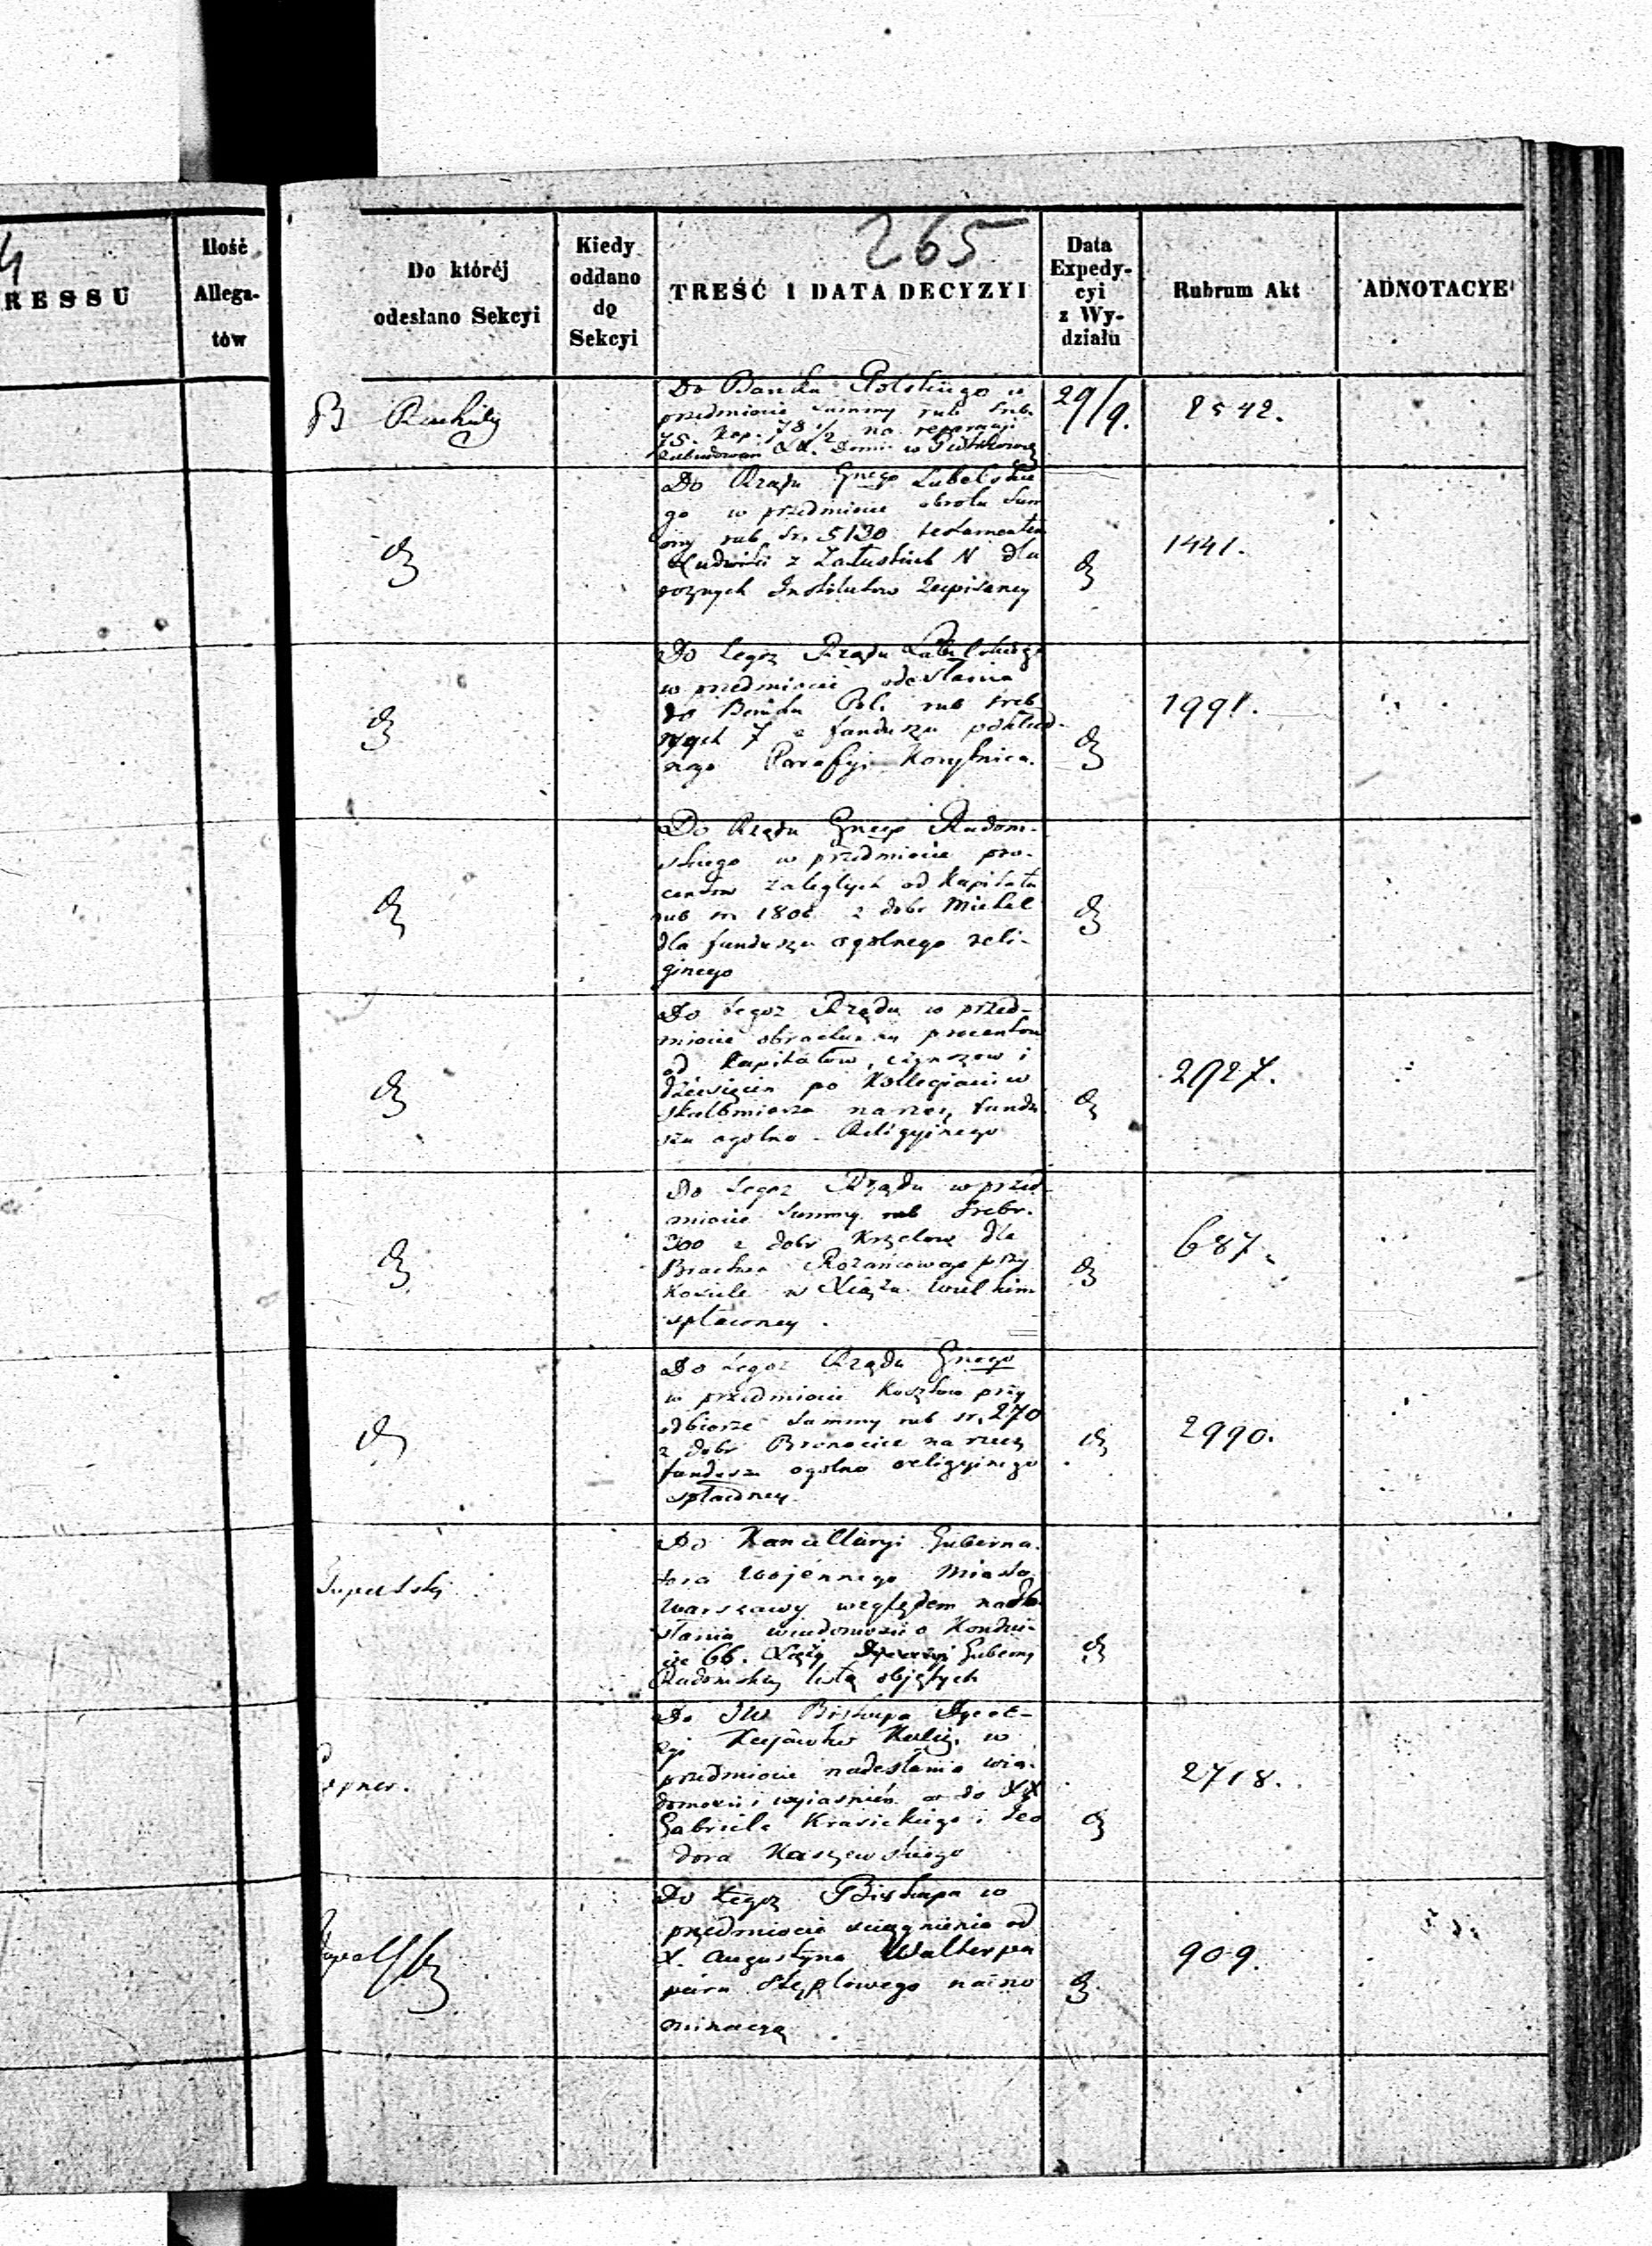 4
RESSU
Ilość
Allega-
tów
Do któréj
odesłano Sekcyi
Kiedy
oddano
do
Sekcyi
265
TREŚĆ I DATA DECYZYI
Data
Expedy-
cyi
z Wy-
działu
Rubrum Akt
ADNOTACYE
B
Do Banku Polskiego w
przedmiocie summy rub srb.
75. kop. 78 1/2 na reperacyi
XX. Domin w
29/9.
2542.
Do Rządu Gnego Lubelskie
go w przedmiocie obrotu Sum
my rub sr. 5130 testamentem
Ludwiki z Załuskich N dla
rożnych Institutow Zapisaney
1441.
Do tegoż Rządu Lubelskiego
w przedmiocie odesłania
do Banku Pols rub sreb
nych 7 z funduszu poklad
nego Parafyi Korytnica.
1991.
Do Rządu Gnego Radom-
skiego w przedmiocie pro-
centow zaległych od Kapitału
rub sr. 1800 z dobr Michal
dla funduszu ogolnego reli-
ginego
Do tegoż Rządu w przed-
miocie obrachunku procentow
od Kapitałow, czynszow i
dziesięcin po Kollegiacie w
Skalbmierzu na rzecz fundu
szu ogolno-Religyjnego
2927.
Do tegoż Rządu w przed
miocie Summy rub srebr.
300 z dobr Krzelow dla
Bractwa Rożańcowego przy
Kościele w Xiążu Wielkim
spłaconey.
687.
Do tegoż Rządu Gnego
w przedmiocie Kosztow przy
odbiorze Summy rub sr. 270
z dobr Bronocice na rzecz
funduszu ogolno religyjnego
spłaconey
2990.
Do Kancellaryi Guberna-
tora Wojennego Miasta
Warszawy względem nade
słania wiadomości o Kondui-
cie 66. Xięży Dyecezyi Guberny
Radomskiey listą objętych
Do JW Biskupa Dyece-
zyi Kujawsko Kalis. w
przedmiocie nadesłania wia-
domości i wyiaśnień co do XX
Gabriela Krasickiego i Teo
dora Kaszewskiego
2718.
Do tegoż Biskupa w
przedmiocie ściągnienia od
X. Augustyna Walter pa
pieru stęplowego na no
minacyą.
909.